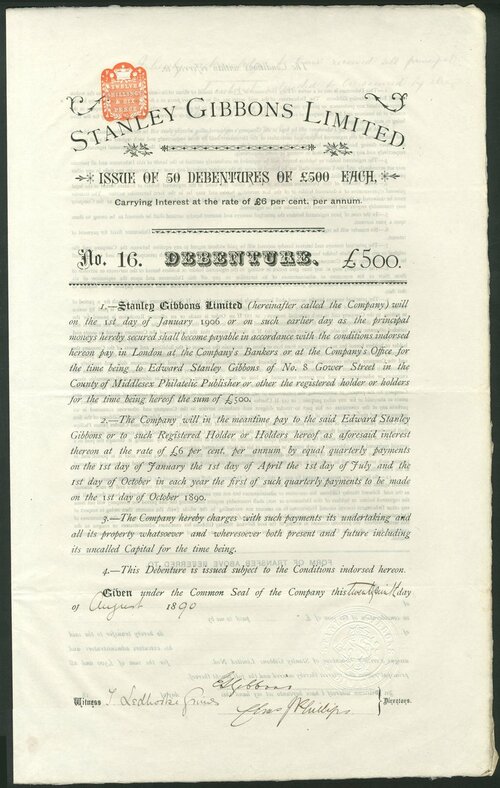 TWELVE
SHILLINGS
& SIX
PENCE
STANLEY GIBBONS LIMITED.
ISSUE OF 50 DEBENTURES OF £500 EACH,
Carrying Interest at the rate of £6 per cent. per annum.
No. 16. DEBENTURE. £500.
1.—Stanley Gibbons Limited (hereinafter called the Company) will
on the 1st day of January 1906 or on such earlier day as the principal
moneys hereby secured shall become payable in accordance with the conditions indorsed
hereon pay in London at the Company's Bankers or at the Company's Office for
the time being to Edward Stanley Gibbons of No. 8 Gower Street in the
County of Middlesex Philatelic Publisher or other the registered holder or holders
for the time being hereof the sum of £500.
2.—The Company will in the meantime pay to the said Edward Stanley
Gibbons or to such Registered Holder or Holders hereof as aforesaid interest
thereon at the rate of £6 per cent. per annum by equal quarterly payments
on the 1st day of January the 1st day of April the 1st day of July and the
1st day of October in each year the first of such quarterly payments to be made
on the 1st day of October 1890.
3.—The Company hereby charges with such payments its undertaking and
all its property whatsoever and wheresoever both present and future including
its uncalled Capital for the time being.
4.—This Debenture is issued subject to the Conditions indorsed hereon.
Given under the Common Seal of the Company this day
of August 1890
E S Gibbons
Witness Directors.
Chas J Phillips